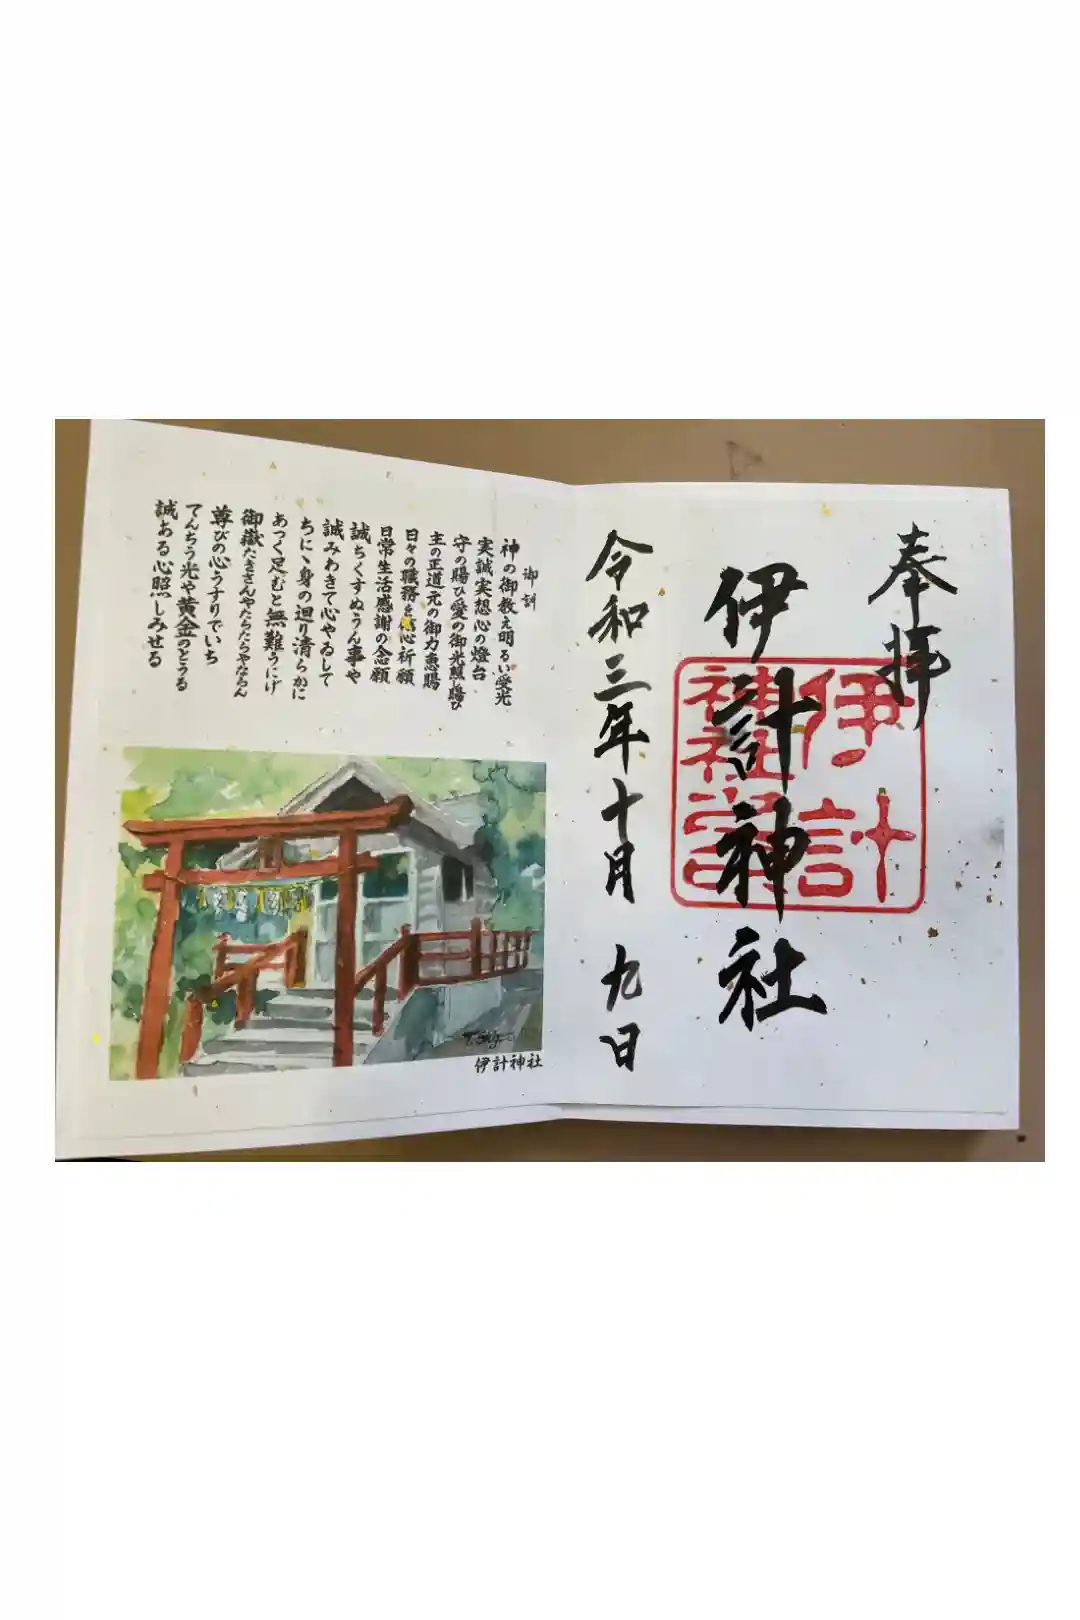 奉拝
伊計神社
伊計
神社宮
令和三年十月 九日
御訓
神の御教え明るい受光
実誠実想心の燈台
守の賜ひ愛の御光照し賜ひ
主の正道元の御力恵賜
日々の職務を 心祈願
日常生活感謝の念願
誠ちくすぬうん事や
誠みわきて心やゐして
ちにヽ身の廻り清らかに
あつく足むと無難うにげ
御嶽たきさんやたらたらやならん
尊びの心うすりでいち
てんちう光や黄金のとうる
誠ある心照しみせる
伊計神社